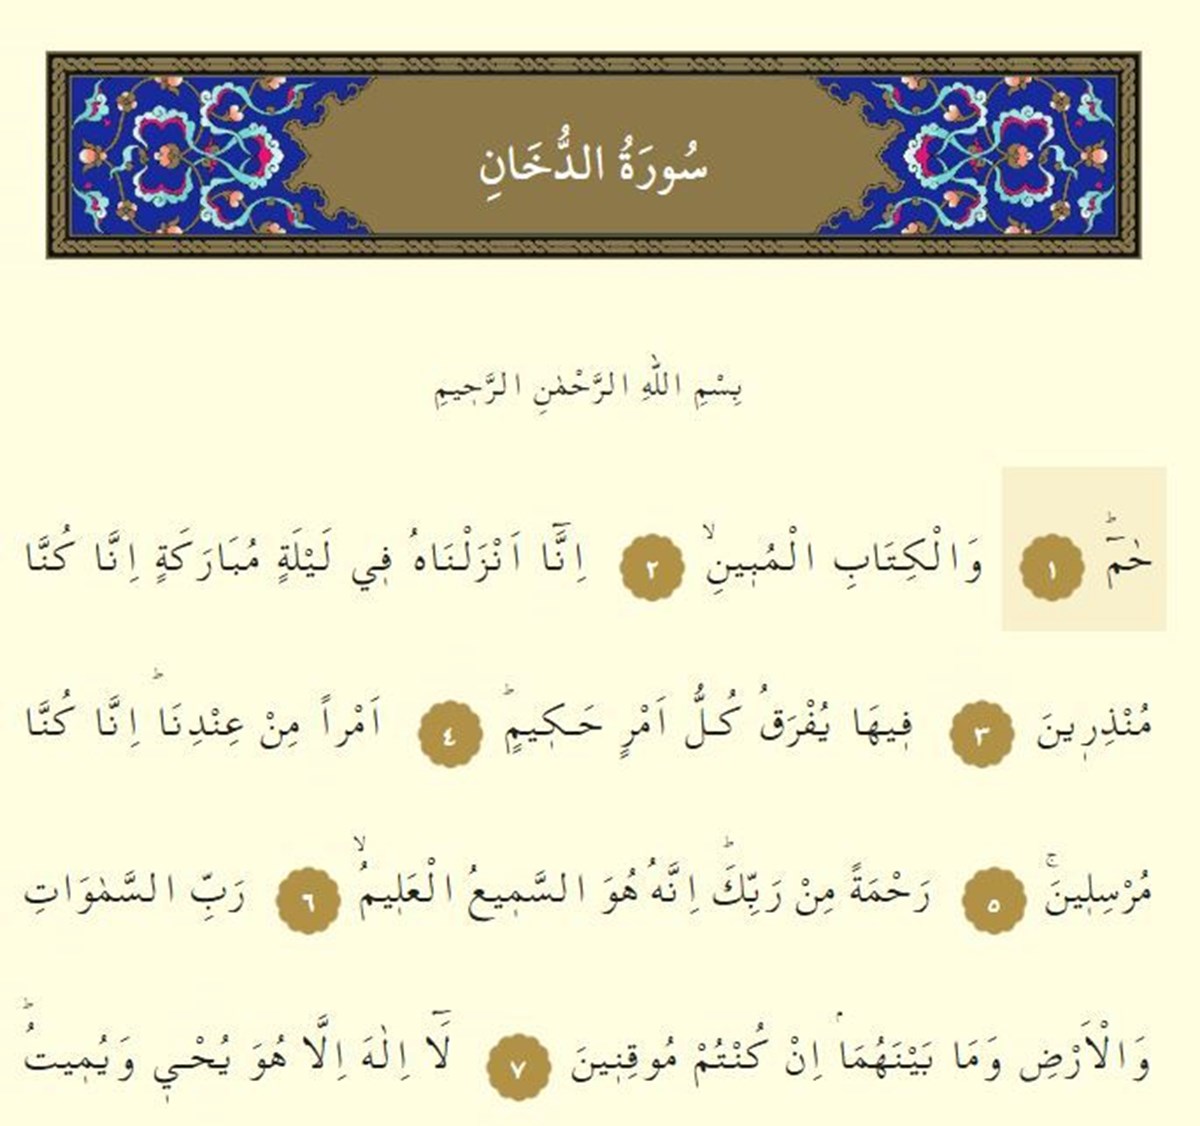 سُورَةُ الدُّخَانِ
بِسْمِ اللّٰهِ الرَّحْمٰنِ الرَّحٖيمِ
حٰمٓ ؕ ١ وَالْكِتَابِ الْمُبٖينِ ۙ ٢ اِنَّٓا اَنْزَلْنَاهُ فٖي لَيْلَةٍ مُبَارَكَةٍ اِنَّا كُنَّا
مُنْذِرٖينَ ٣ فٖيهَا يُفْرَقُ كُلُّ اَمْرٍ حَكٖيمٍ ؕ ٤ اَمْراً مِنْ عِنْدِنَا ؕ اِنَّا كُنَّا
مُرْسِلٖينَ ۚ ٥ رَحْمَةً مِنْ رَبِّكَ ؕ اِنَّهُ هُوَ السَّمٖيعُ الْعَلٖيمُ ۙ ٦ رَبِّ السَّمٰوَاتِ
وَالْاَرْضِ وَمَا بَيْنَهُمَا ۢ اِنْ كُنْتُمْ مُوقِنٖينَ ٧ لَٓا اِلٰهَ اِلَّا هُوَ يُحْيٖ وَيُمٖيتُ ؕ